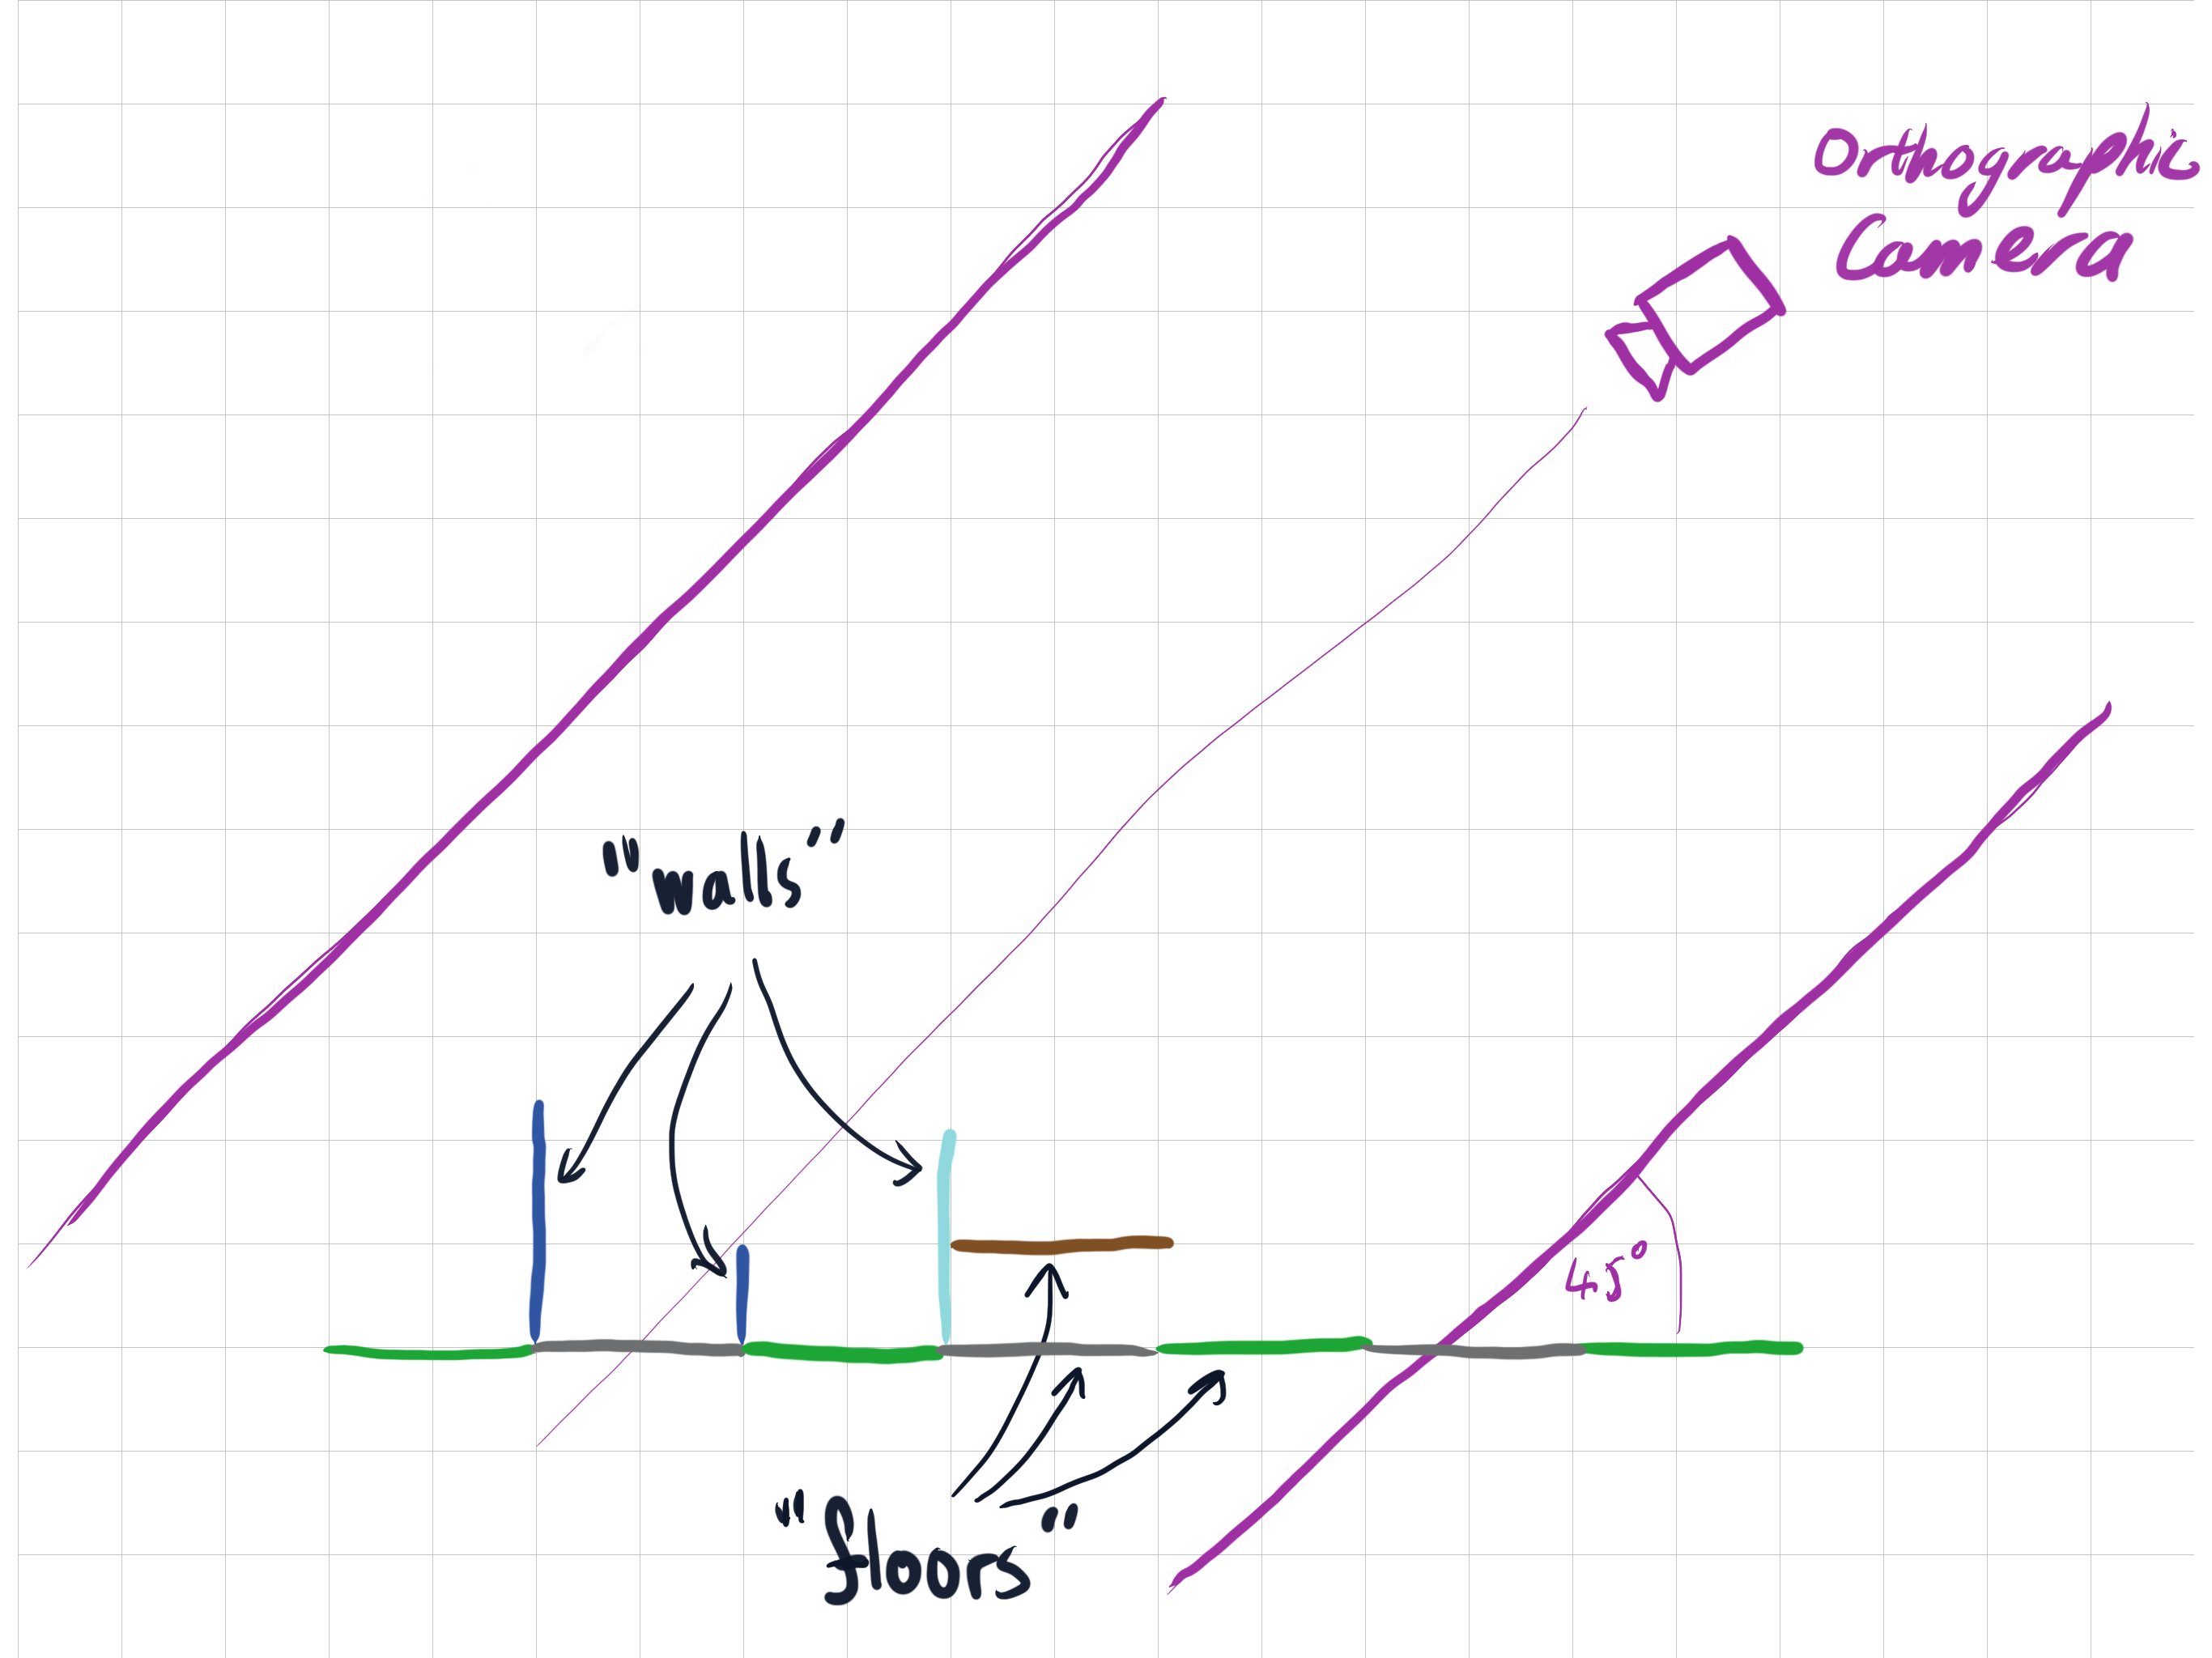 Orthographic
Camera
"walls"
45°
"floors"